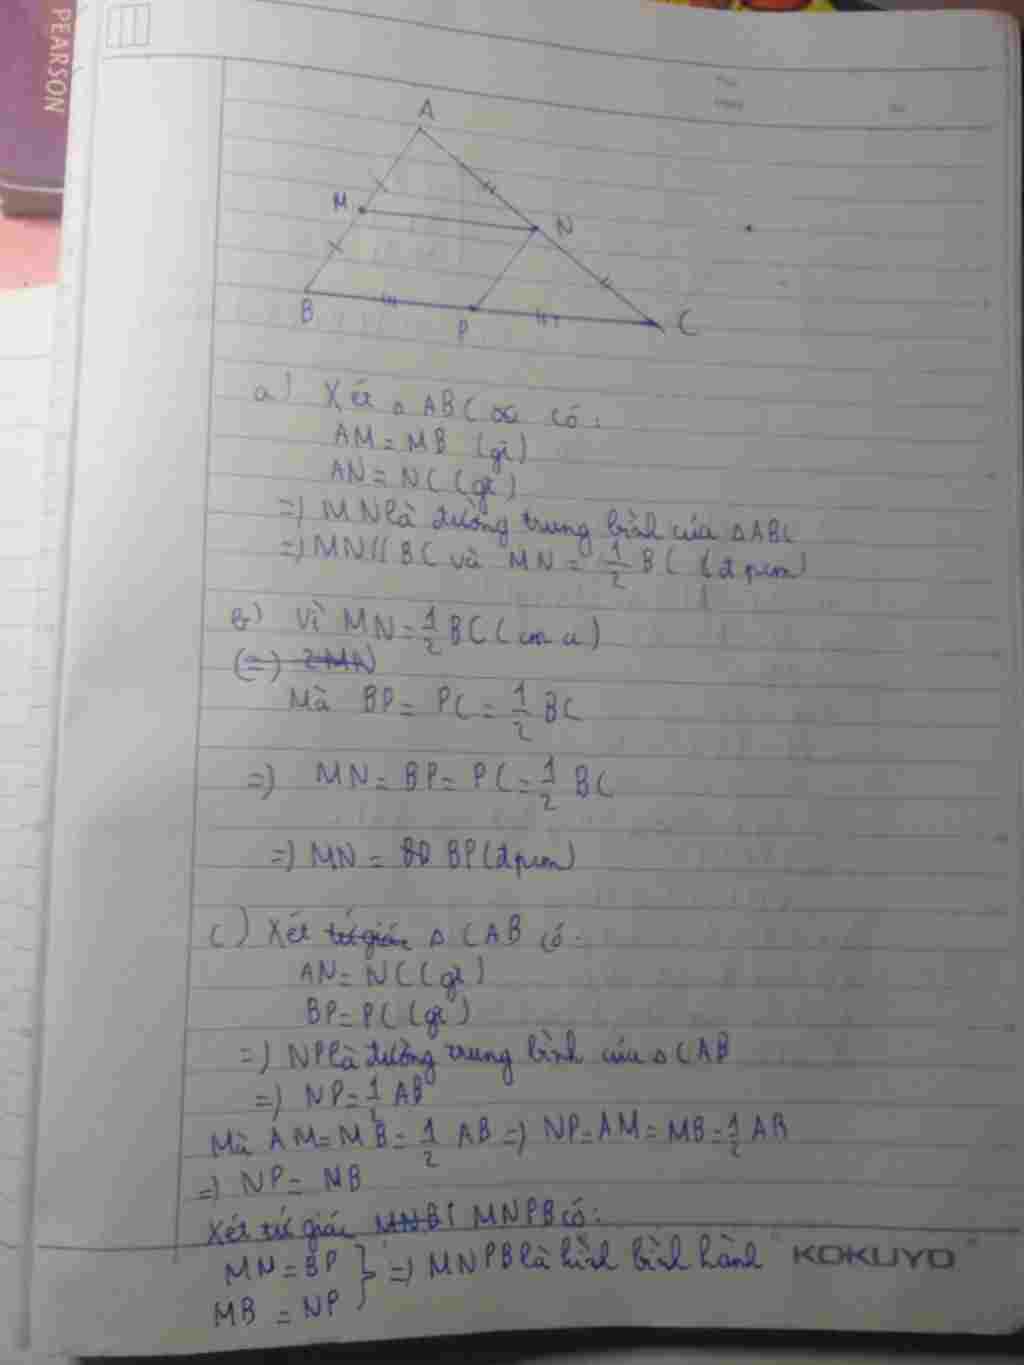 PEARSON
A
M
N
B
P
C
a) Xét △ ABC có:
AM = MB (gt)
AN = NC (gt)
=) MN là đường trung bình của △ ABC
=) MN // BC và MN = 1/2 BC (đpcm)
b) Vì MN = 1/2 BC (cm a)
Mà BP = PC = 1/2 BC
=) MN = BP = PC = 1/2 BC
=) MN = BP (đpcm)
c) Xét tứ giác △ CAB có:
AN = NC (gt)
BP = PC (gt)
=) NP là đường trung bình của △ CAB
=) NP = 1/2 AB
Mà AM = MB = 1/2 AB =) NP = AM = MB = 1/2 AB
=) NP = MB
Xét tứ giác MNPB có:
MN = BP } =) MNPB là hình bình hành
MB = NP
KOKUYO